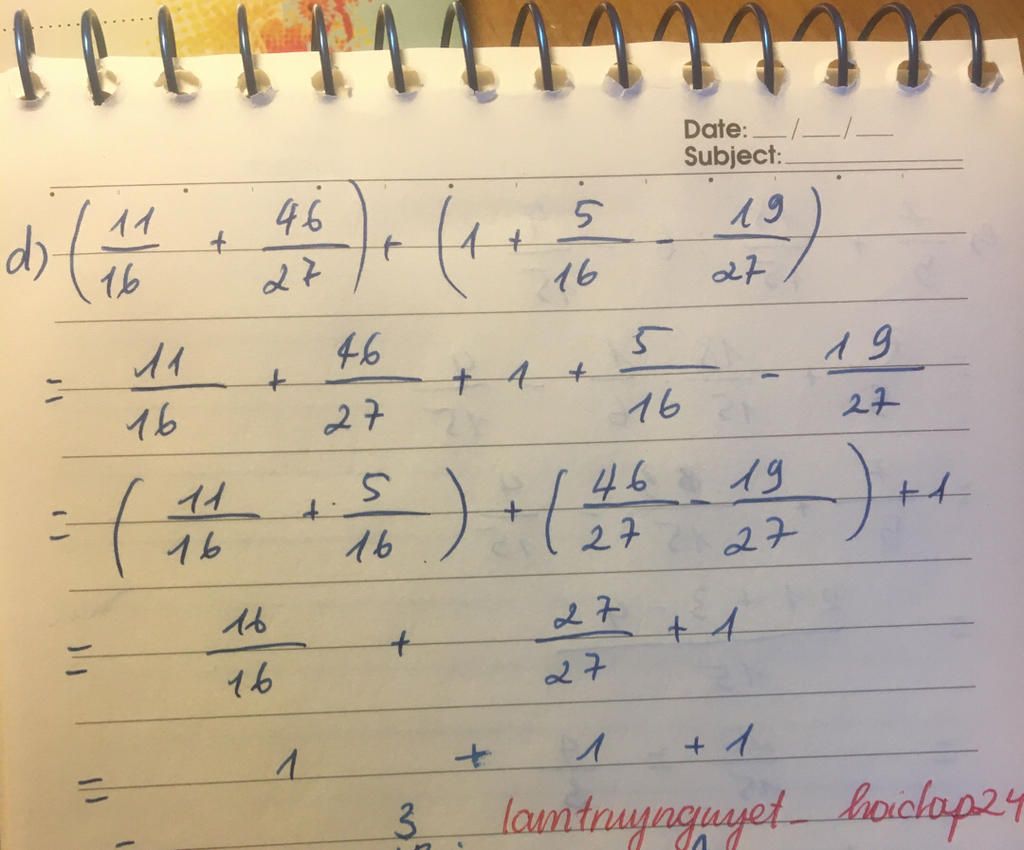 Date: __/__/__
Subject:
d) (11/16 + 46/27) + (1 + 5/16 - 19/27)
= 11/16 + 46/27 + 1 + 5/16 - 19/27
= (11/16 + 5/16) + (46/27 - 19/27) + 1
= 16/16 + 27/27 + 1
= 1 + 1 + 1
= 3 lamtruynguyet_ hoidap24